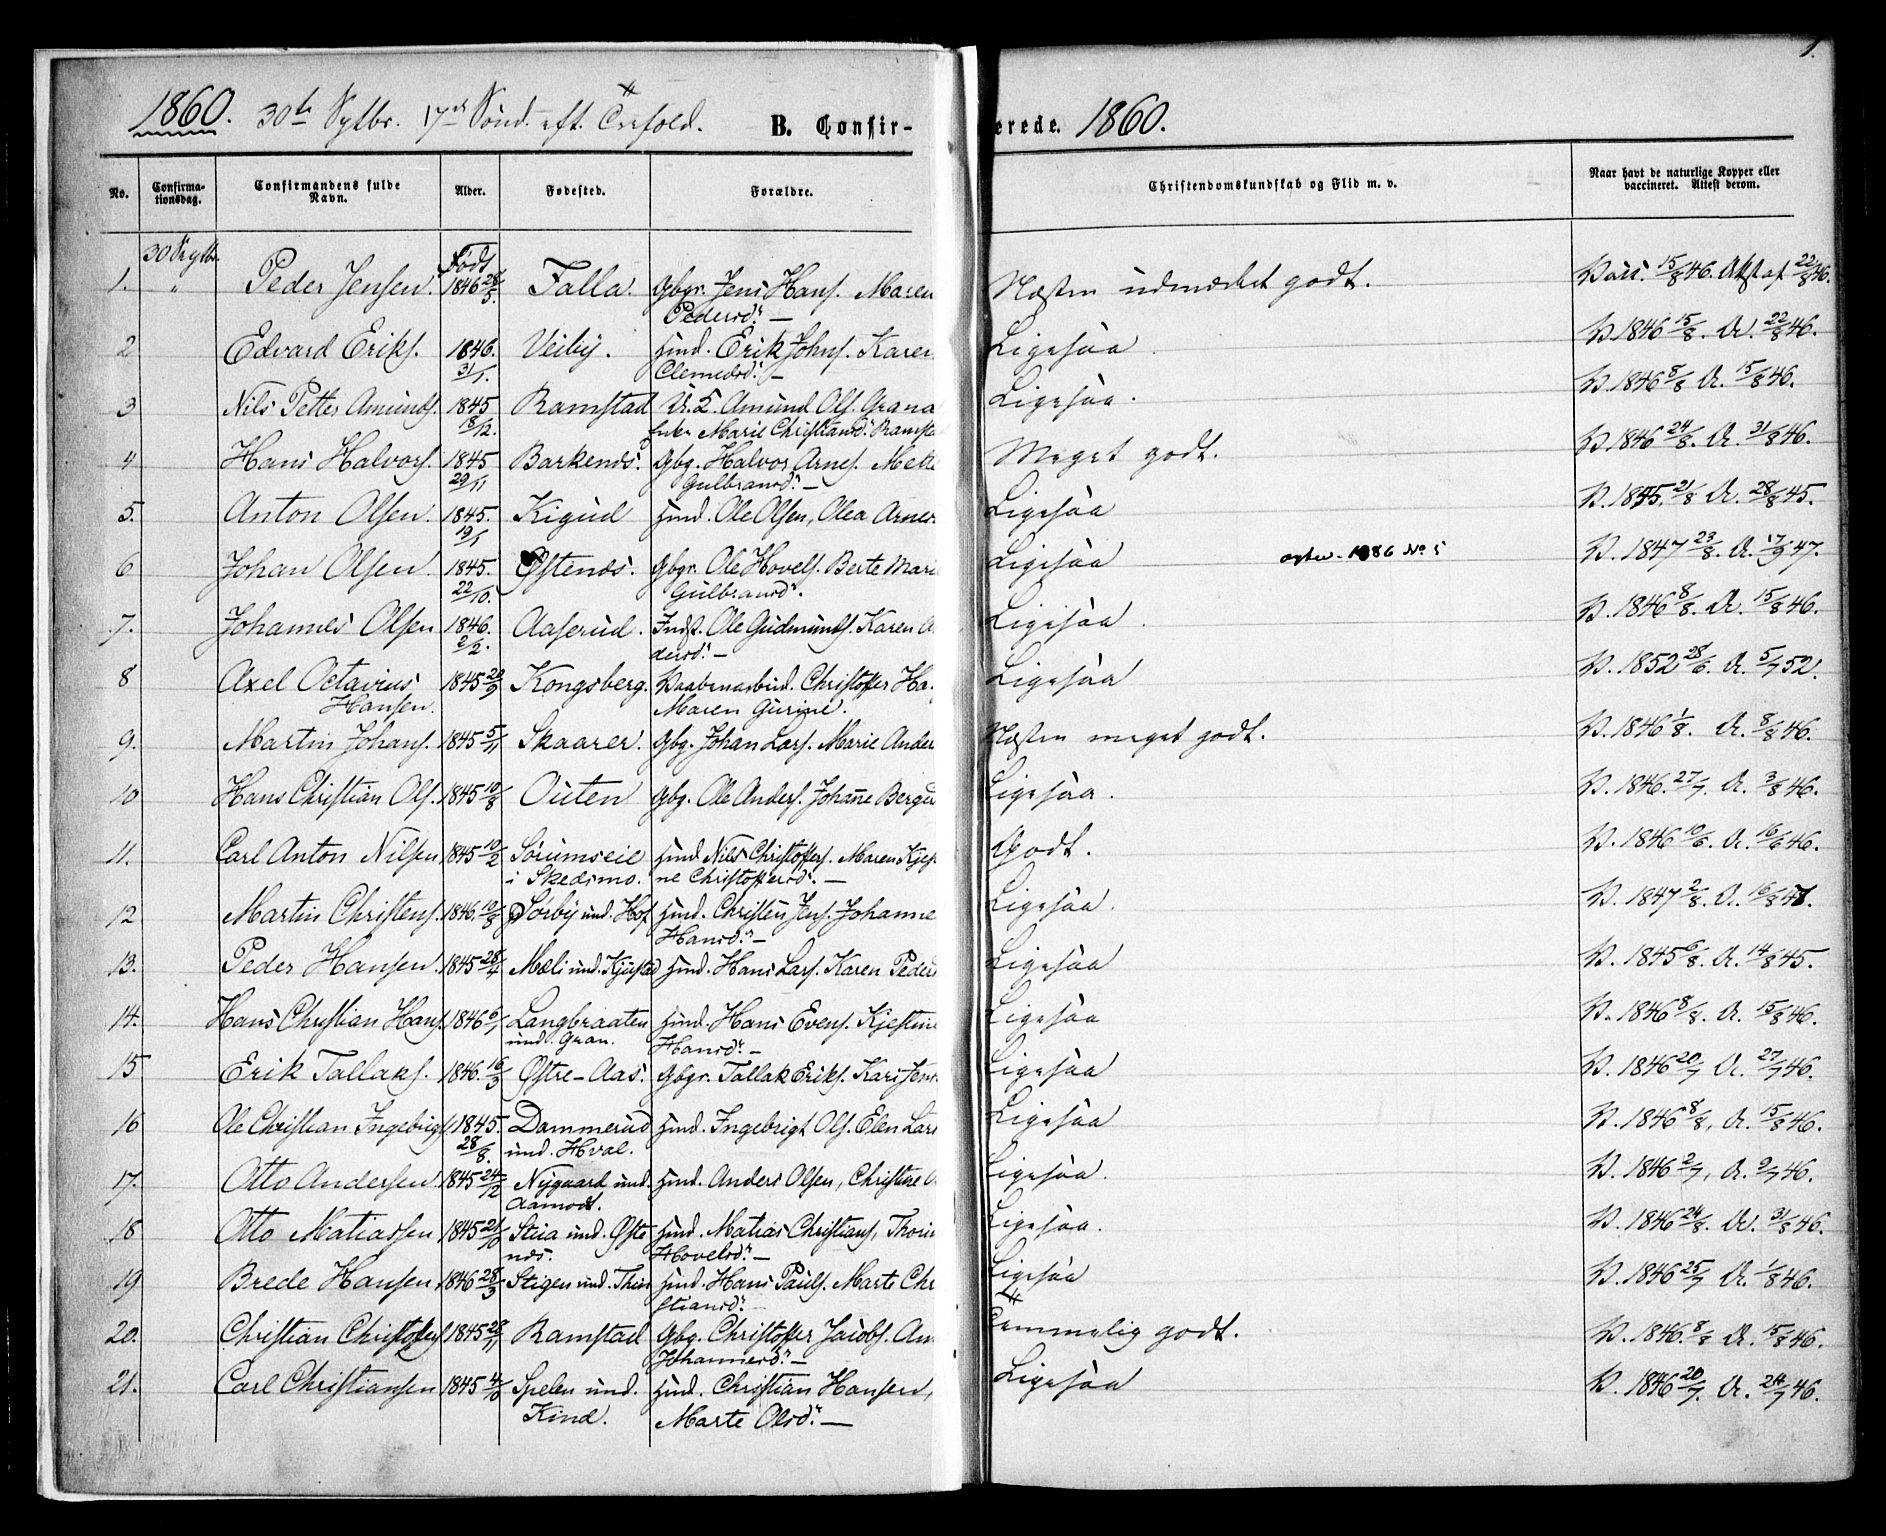 1860. 30te Sptbr. 17de Sønd. eft. Trefold. B. Confir-
No. Confirma-tionsdag. Confirmandens fulde Navn. Alder. Fødested. Forældre.
30 Septbr. Født
1. " Peder Jensen. 1846 28/5 Falla. Gbgr. Jens Hans. Maren
Pedersd. —
2 Edvard Eriks. 1846. Veiby. Huusd. Erik Johns. Karen
31/1. Clemedsd. —
3 Nils Petter Amunds. 1845 Ramstad U.E. Amund Ols. Grana
18/12. Enke Marie Christiansd. Ramstad
4 Hans Halvors. 1845 Barkenæs. Gbg. Halvor Arnes. Mette
29/11 Gulbransd. —
5. Anton Olsen. 1845. Kigud Huusd. Ole Olsen, Olea Arnes
19/1
6 Johan Olsen. 1845. Østenæs. Gbgr. Ole Hovels. Berte Marie
22/10. Gulbransd.
7. Johannes Olsen 1846. Aaserud. Indst. Ole Gudmunds. Karen
2/2. dersd. —
8 Axel Octavius 1845 20/9 Kongsberg. Vaabenarbeid. Christoffer Ha
Hansen. Maren Gurine.
9. Martin Johans. 1845 5/11 Skaarer. Gbg. Johan Lars. Marie Ander
10 Hans Christian Ols. 1845 10/8 Outen Gbg. Ole Anders. Johanne Berger
11. Carl Anton Nilsen 1845 10/2 Sørumseie Huusd. Nils Christoffers. Maren Kjes
i Skedsmo. ne Christoffersd. —
12 Martin Christens. 1846. 10/8 Sørby und. Hof Huusd. Christen Jens. Johanne
Hansd. —
13. Peder Hansen. 1845 28/4 Mæli und. Kjustad Huusd. Hans Lars. Karen Peders
14. Hans Christian Hans. 1846 6/1 Langbraaten Huusd. Hans Evens. Kjestine
und. Gran. Hansd. —
15 Erik Tallaks. 1846. 16/3 Østre-Aas. Gbgr. Tallak Eriks. Kari Jens
16 Ole Christian Ingebrigts. 1845. Dammerud Huusd. Ingebrigt Ols. Elen Lars
28/8. und. Hval.
17. Otto Andersen. 1845 24/12 Nygaard und. Huusd. Anders Olsen, Christine
Aamodt.
18 Otto Matiassen 1845 21/10 Stua und. Øste Huusd. Matias Christians, Thorin
næs. Hovelsd. —
19 Brede Hansen. 1846 28/3 Stigen und. Thin Huusd. Hans Pauls. Marte Chr
stiansd. —
20. Christian Christoffers 1845 28/11 Ramstad Gbg. Christoffer Jacobs. An
Johannesd. —
21. Carl Christiansen 1845 4/10 Spelen und. Huusd. Christian Hansen,
Kind. Marte Olsd. —
1.
erede. 1860.
Christendomskundskab og Flid m. v. Naar havt de naturlige Kopper eller vaccineret. Attest derom.
Næsten udmærket godt. Vacc. 15/8 46. Attest af 22/8 46.
Ligesaa. V. 1846 15/8. A. 22/8 46.
Ligesaa. V. 1846 8/8 A. 15/8 46.
Meget godt. V. 1846 24/8. A. 31/8 46.
Ligesaa V. 1845. 21/8 A. 28/8 45.
Ligesaa 1886 No 5 V. 1847 23/8. A. 17/9 47.
Ligesaa. V. 1846 8/8. A. 15/8 46.
Ligesaa V. 1852 28/6. A. 5/7 52.
Næsten meget godt. V. 1846 1/8. A. 8/8 46.
Ligesaa. V. 1846. 27/7. A. 3/8 46.
Godt. V. 1846 10/6. A. 16/6 46.
Ligesaa. V. 1847 2/8. A. 16/8 47.
Ligesaa V. 1845 6/8. A. 14/8 45.
Ligesaa V. 1846 8/8. A. 15/8 46.
Ligesaa V. 1846 20/7 A. 27/7 46.
Ligesaa V. 1846 8/8, A. 15/8 46.
Ligesaa. V. 1846 2/7, A. 9/7 46.
Ligesaa. V. 1846 24/8. A. 31/8 46.
Ligesaa V. 1846 25/7 A. 1/8 46.
Temmelig godt. V. 1846. 8/8 A. 15/8 46.
Ligesaa V. 1846 20/7. A. 24/7 46.